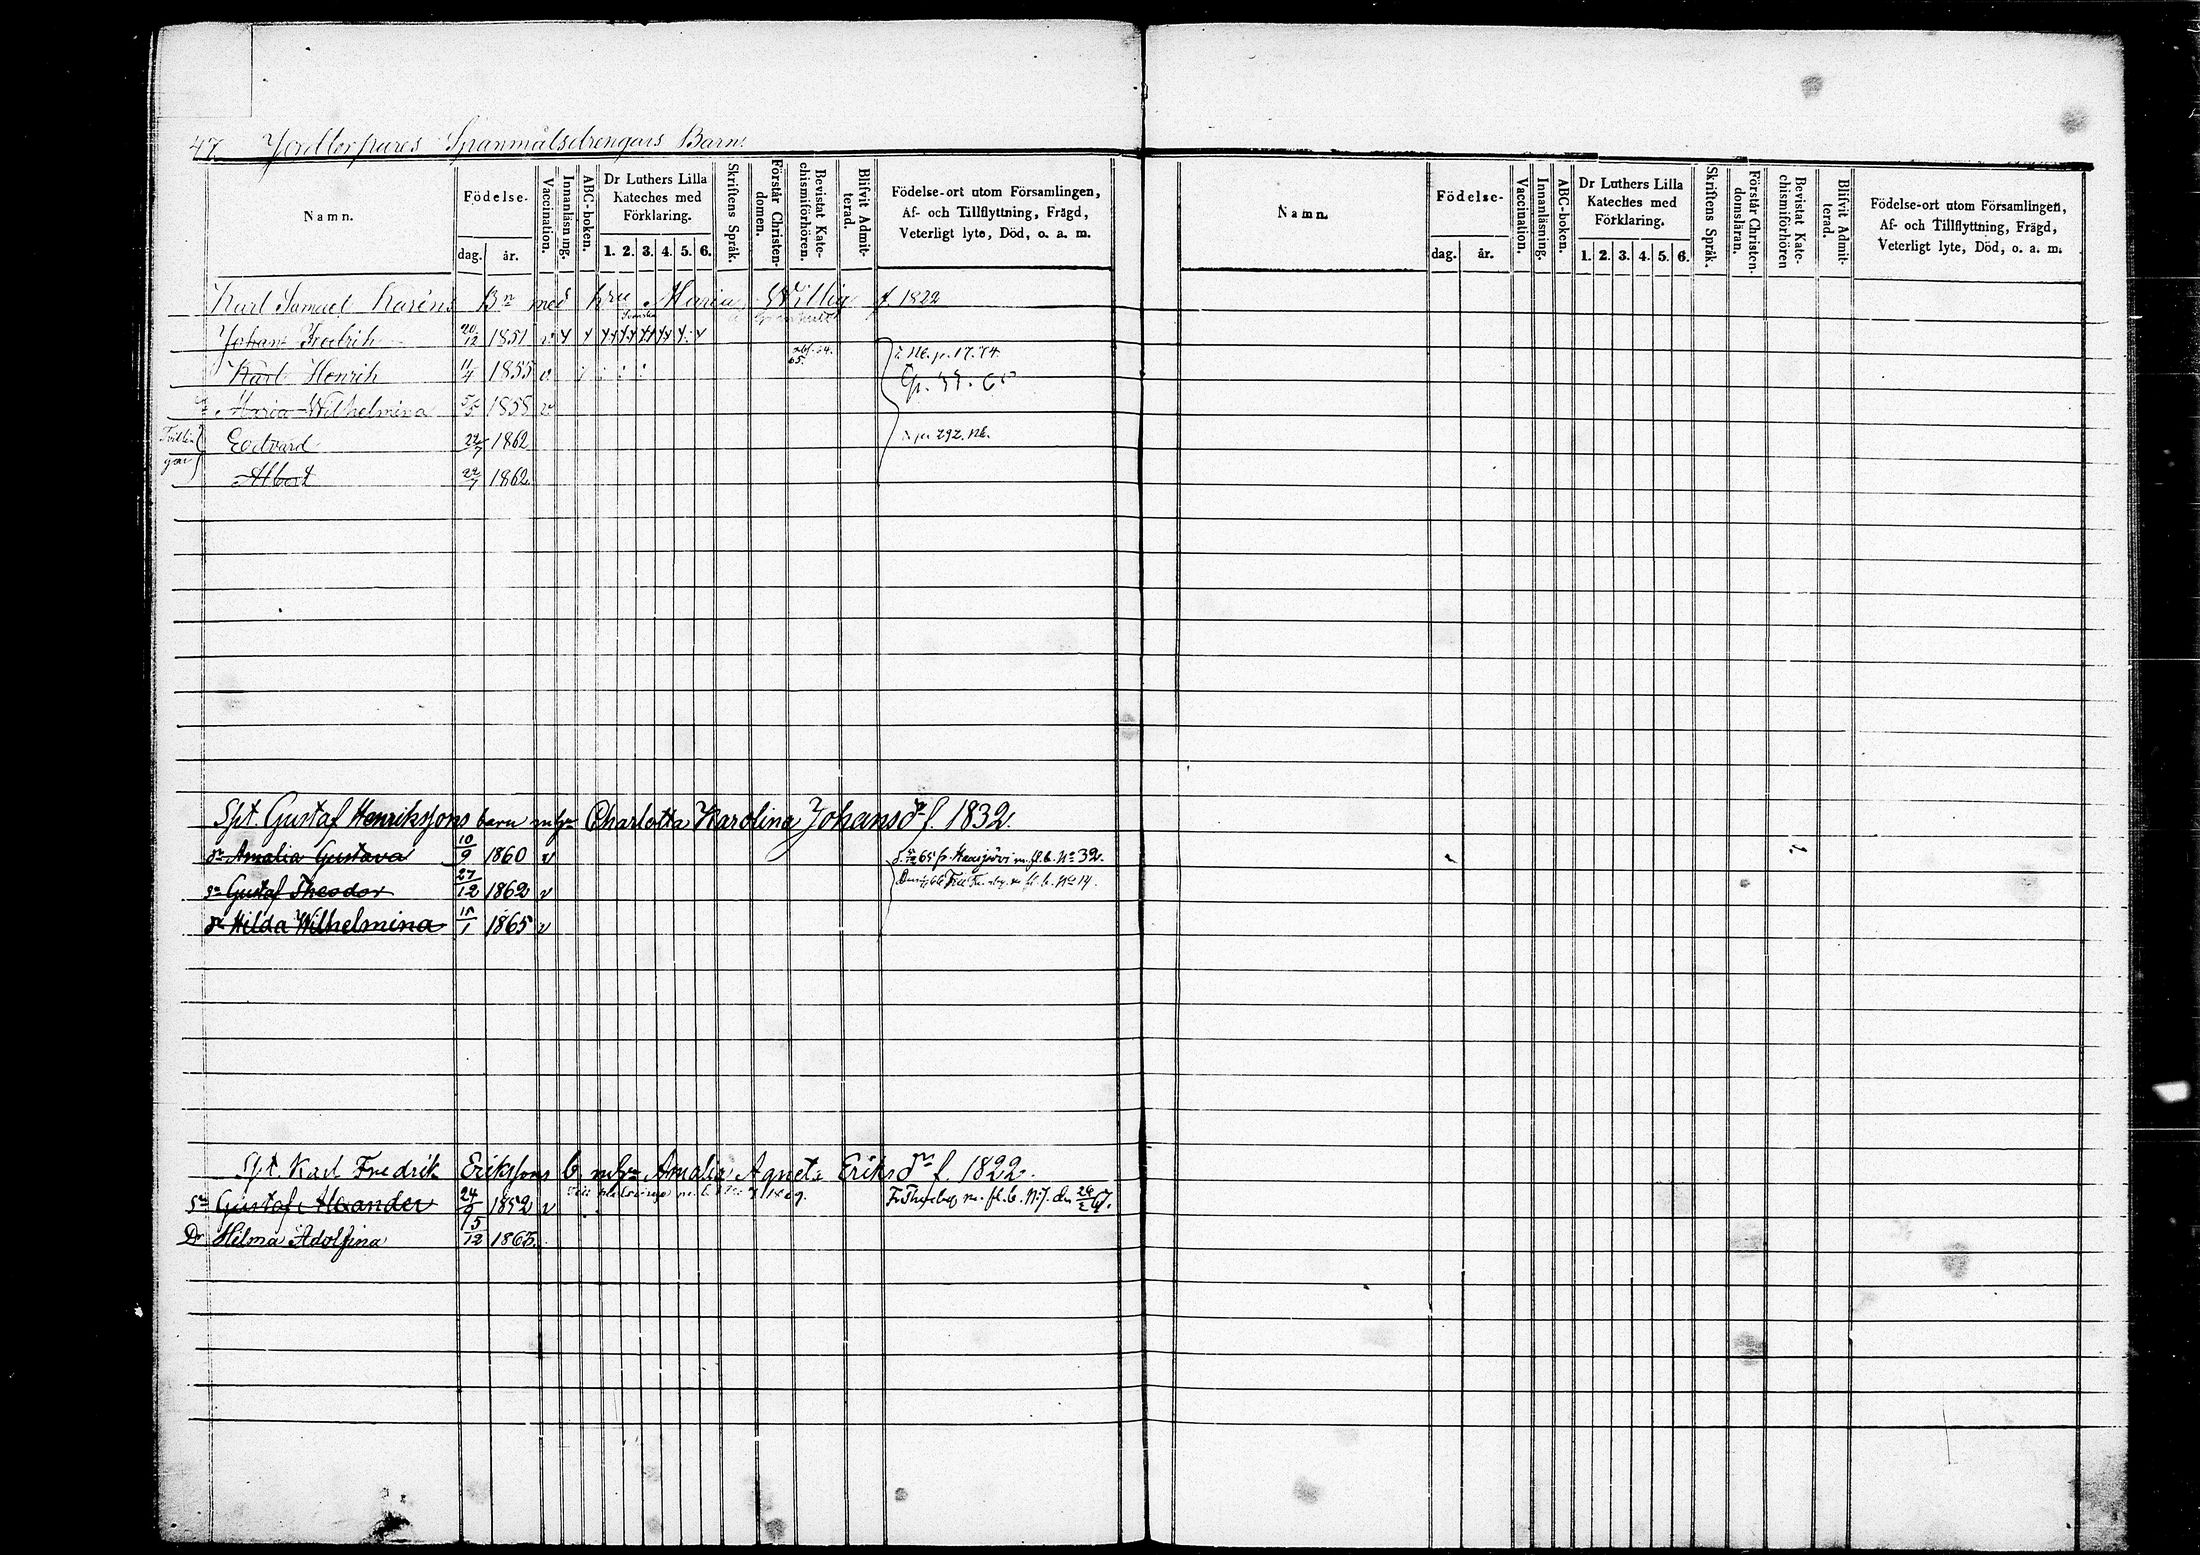 47. Spanmålsdrengars Barn.
Namn.
Födelse-
dag. år.
Vaccination.
Innanläsning.
ABC-boken.
Dr Luthers Lilla
Kateches med
Förklaring.
1. 2. 3. 4. 5. 6.
Skriftens Språk.
Förstår Christen-
domen.
Bevistat Kate-
chismiförhören.
Blifvit Admit-
terad.
Födelse-ort utom Församlingen,
Af- och Tillflyttning, Frägd,
Veterligt lyte, Död, o. a. m.
Karl Samuel Karéns Bn med hru Maria Willig f. 1822
Johan Fredrik 20/12 1851 v
Karl Henrik 11/4 1855 v
Maria Wilhelmina 5/5 1858 v
Tvillin
gar
Edvard 22/7 1862
Albert 22/7 1862
Spt. Gustaf Henrikssons barn m hr Charlotta Karolina Johansdr f. 1832.
dr Amalia Gustava 10/9 1860 v m. fl. b. No 32.
sn Gustaf Theodor 27/12 1862 v fl. b. No 14.
dr Hilda Wilhelmina 1/1 1865 v
Spt. Karl Fredrik Erikssons b. m hr Amalia Agneta Eriksdr f. 1822.
sn Gustaf Alexander 24/9 1852 v m. fl. b. N:7. den 26/2 67.
Dr Hilma Adolfina 15/12 1865.
Namn.
Födelse-
dag. år.
Vaccination.
Innanläsning.
ABC-boken.
Dr Luthers Lilla
Kateches med
Förklaring.
1. 2. 3. 4. 5. 6.
Skriftens Språk.
Förstår Christen-
domsläran.
Bevistat Kate-
chismiförhören
Blifvit Admit-
terad.
Födelse-ort utom Församlingen,
Af- och Tillflyttning, Frägd,
Veterligt lyte, Död, o. a. m.